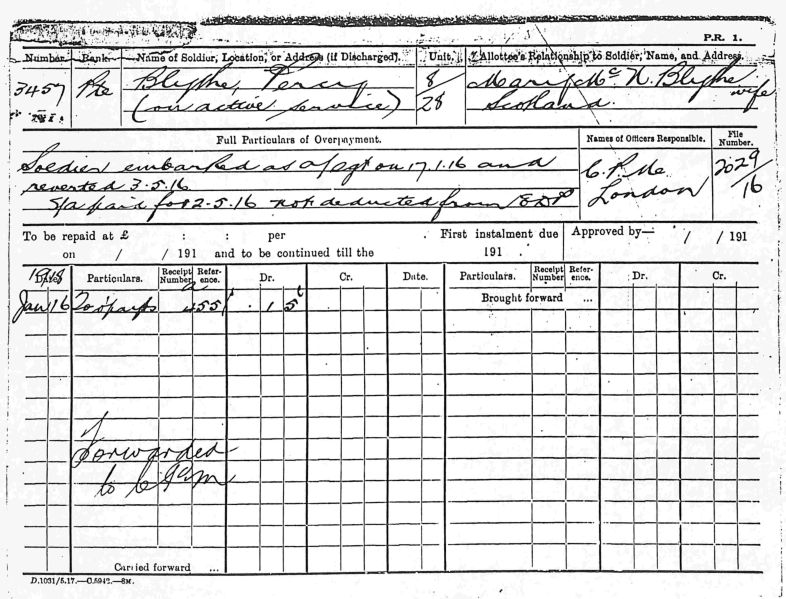 P.R. 1.
Number. Rank. Name of Soldier, Location, or Address (if Discharged). Unit. Allottee's Relationship to Soldier, Name, and Address.
3457 Pte Blythe, Percy 8/28 Mary Mc N. Blythe wife
(on active service) Scotland.
Full Particulars of Overpayment. Names of Officers Responsible. File Number.
Soldier embarked as a/sgt on 17.1.16 and
reverted 3-5.16
paid for 2-5.16 not deducted from
London
2029/16
To be repaid at £ : : per . First instalment due Approved by—
on / / 191 and to be continued till the 191 . / / 191
1918
Date. Particulars. Receipt Number. Reference. Dr. Cr. Date. Particulars. Receipt Number. Reference. Dr. Cr.
Brought forward ...
Jan 16 455 1 5
Forwarded
to
Carried forward ...
D.1031/5.17.—C.5942.—8M.